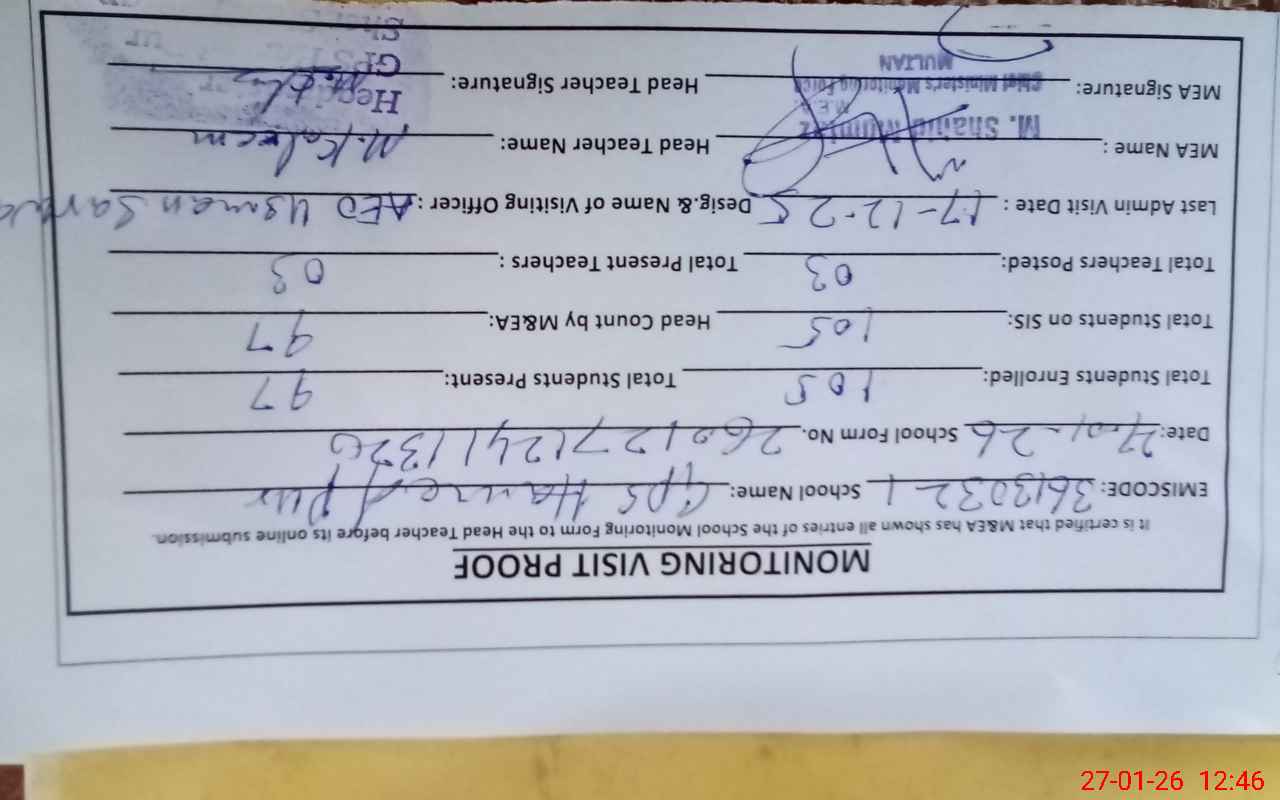 MONITORING VISIT PROOF
It is certified that M&EA has shown all entries of the School Monitoring Form to the Head Teacher before its online submission.
EMISCODE: 36130321 School Name: GPS Hamed Pur
Date: 27-01-26 School Form No. 26012712411326
Total Students Enrolled: 105 Total Students Present: 97
Total Students on SIS: 105 Head Count by M&EA: 97
Total Teachers Posted: 03 Total Present Teachers : 03
Last Admin Visit Date : 17-12-25 Desig.& Name of Visiting Officer : AEO Usman
MEA Name : M. Shahid Head Teacher Name: M. Kaleem
MEA Signature: Chief Minister's Monitoring Force Head Teacher Signature: Head
MULTAN GPS
27-01-26 12:46